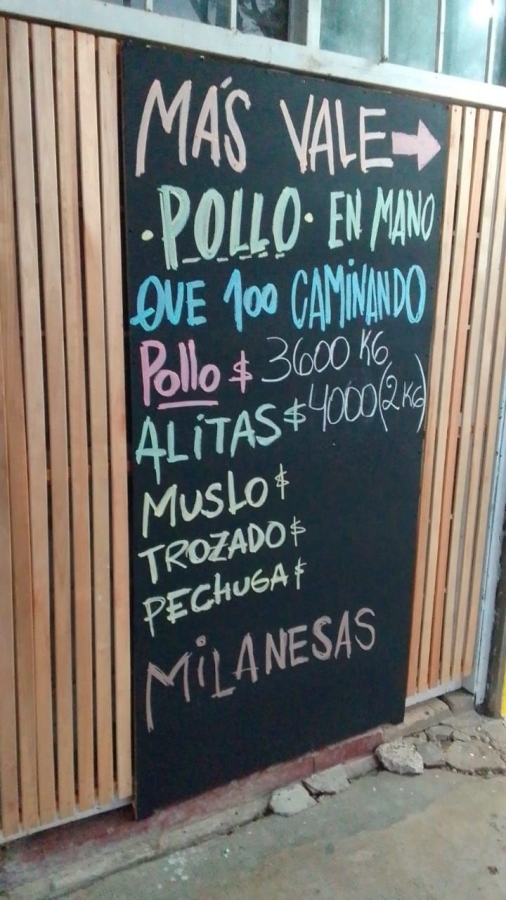 MÁS VALE →
·POLLO· EN MANO
QUE 100 CAMINANDO
Pollo $ 3600 KG
ALITAS $ 4000 (2 KG)
MUSLO $
TROZADO $
PECHUGA $
MILANESAS